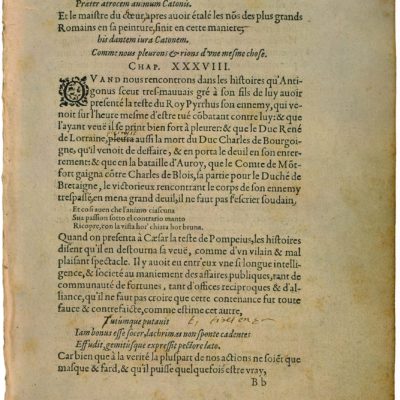 Præter atrocem animum Catonis.
Et le maistre du cœur, apres auoir étalé les nõs des plus grands
Romains en sa peinture, finit en cette maniere:
his dantem iura Catonem.
Comme nous pleurons & rions d'vne mesme chose.
CHAP. XXXVIII.
QVAND nous rencontrons dans les histoires qu'Anti-
gonus sceut tres-mauuais gré à son fils de luy auoir
presenté la teste du Roy Pyrrhus son ennemy, qui ve-
noit sur l'heure mesme d'estre tué cõbatant contre luy: & que
l'ayant veuë il se print bien fort à pleurer: & que le Duc René
de Lorraine, pleura aussi la mort du Duc Charles de Bourgoi-
gne, qu'il venoit de deffaire, & en porta le deuil en son enter-
rement: & que en la bataille d'Auroy, que le Comte de Mõt-
fort gaigna cõtre Charles de Blois, sa partie pour le Duché de
Bretaigne, le victorieux rencontrant le corps de son ennemy
trespassé, en mena grand deuil, il ne faut pas s'escrier soudain,
Et cosi auen che l'animo ciascuna
Sua passion sotto el contrario manto
Ricopre, con la vista hor' chiara hor bruna.
Quand on presenta à Cæsar la teste de Pompeius, les histoires
disent qu'il en destourna sa veuë, comme d'vn vilain & mal
plaisant spectacle. Il y auoit eu entr'eux vne si longue intelli-
gence, & societé au maniement des affaires publiques, tant de
communauté de fortunes, tant d'offices reciproques & d'al-
liance, qu'il ne faut pas croire que cette contenance fut toute
fauce & contrefaicte, comme estime cet autre,
Tutúmque putauit
Iam bonus esse socer, lachrimas non sponte cadentes
Effudit, gemitúsque expressit pectore læto.
Car bien que à la verité la pluspart de nos actions ne soiẽt que
masque & fard, & qu'il puisse quelquefois estre vray,
B b